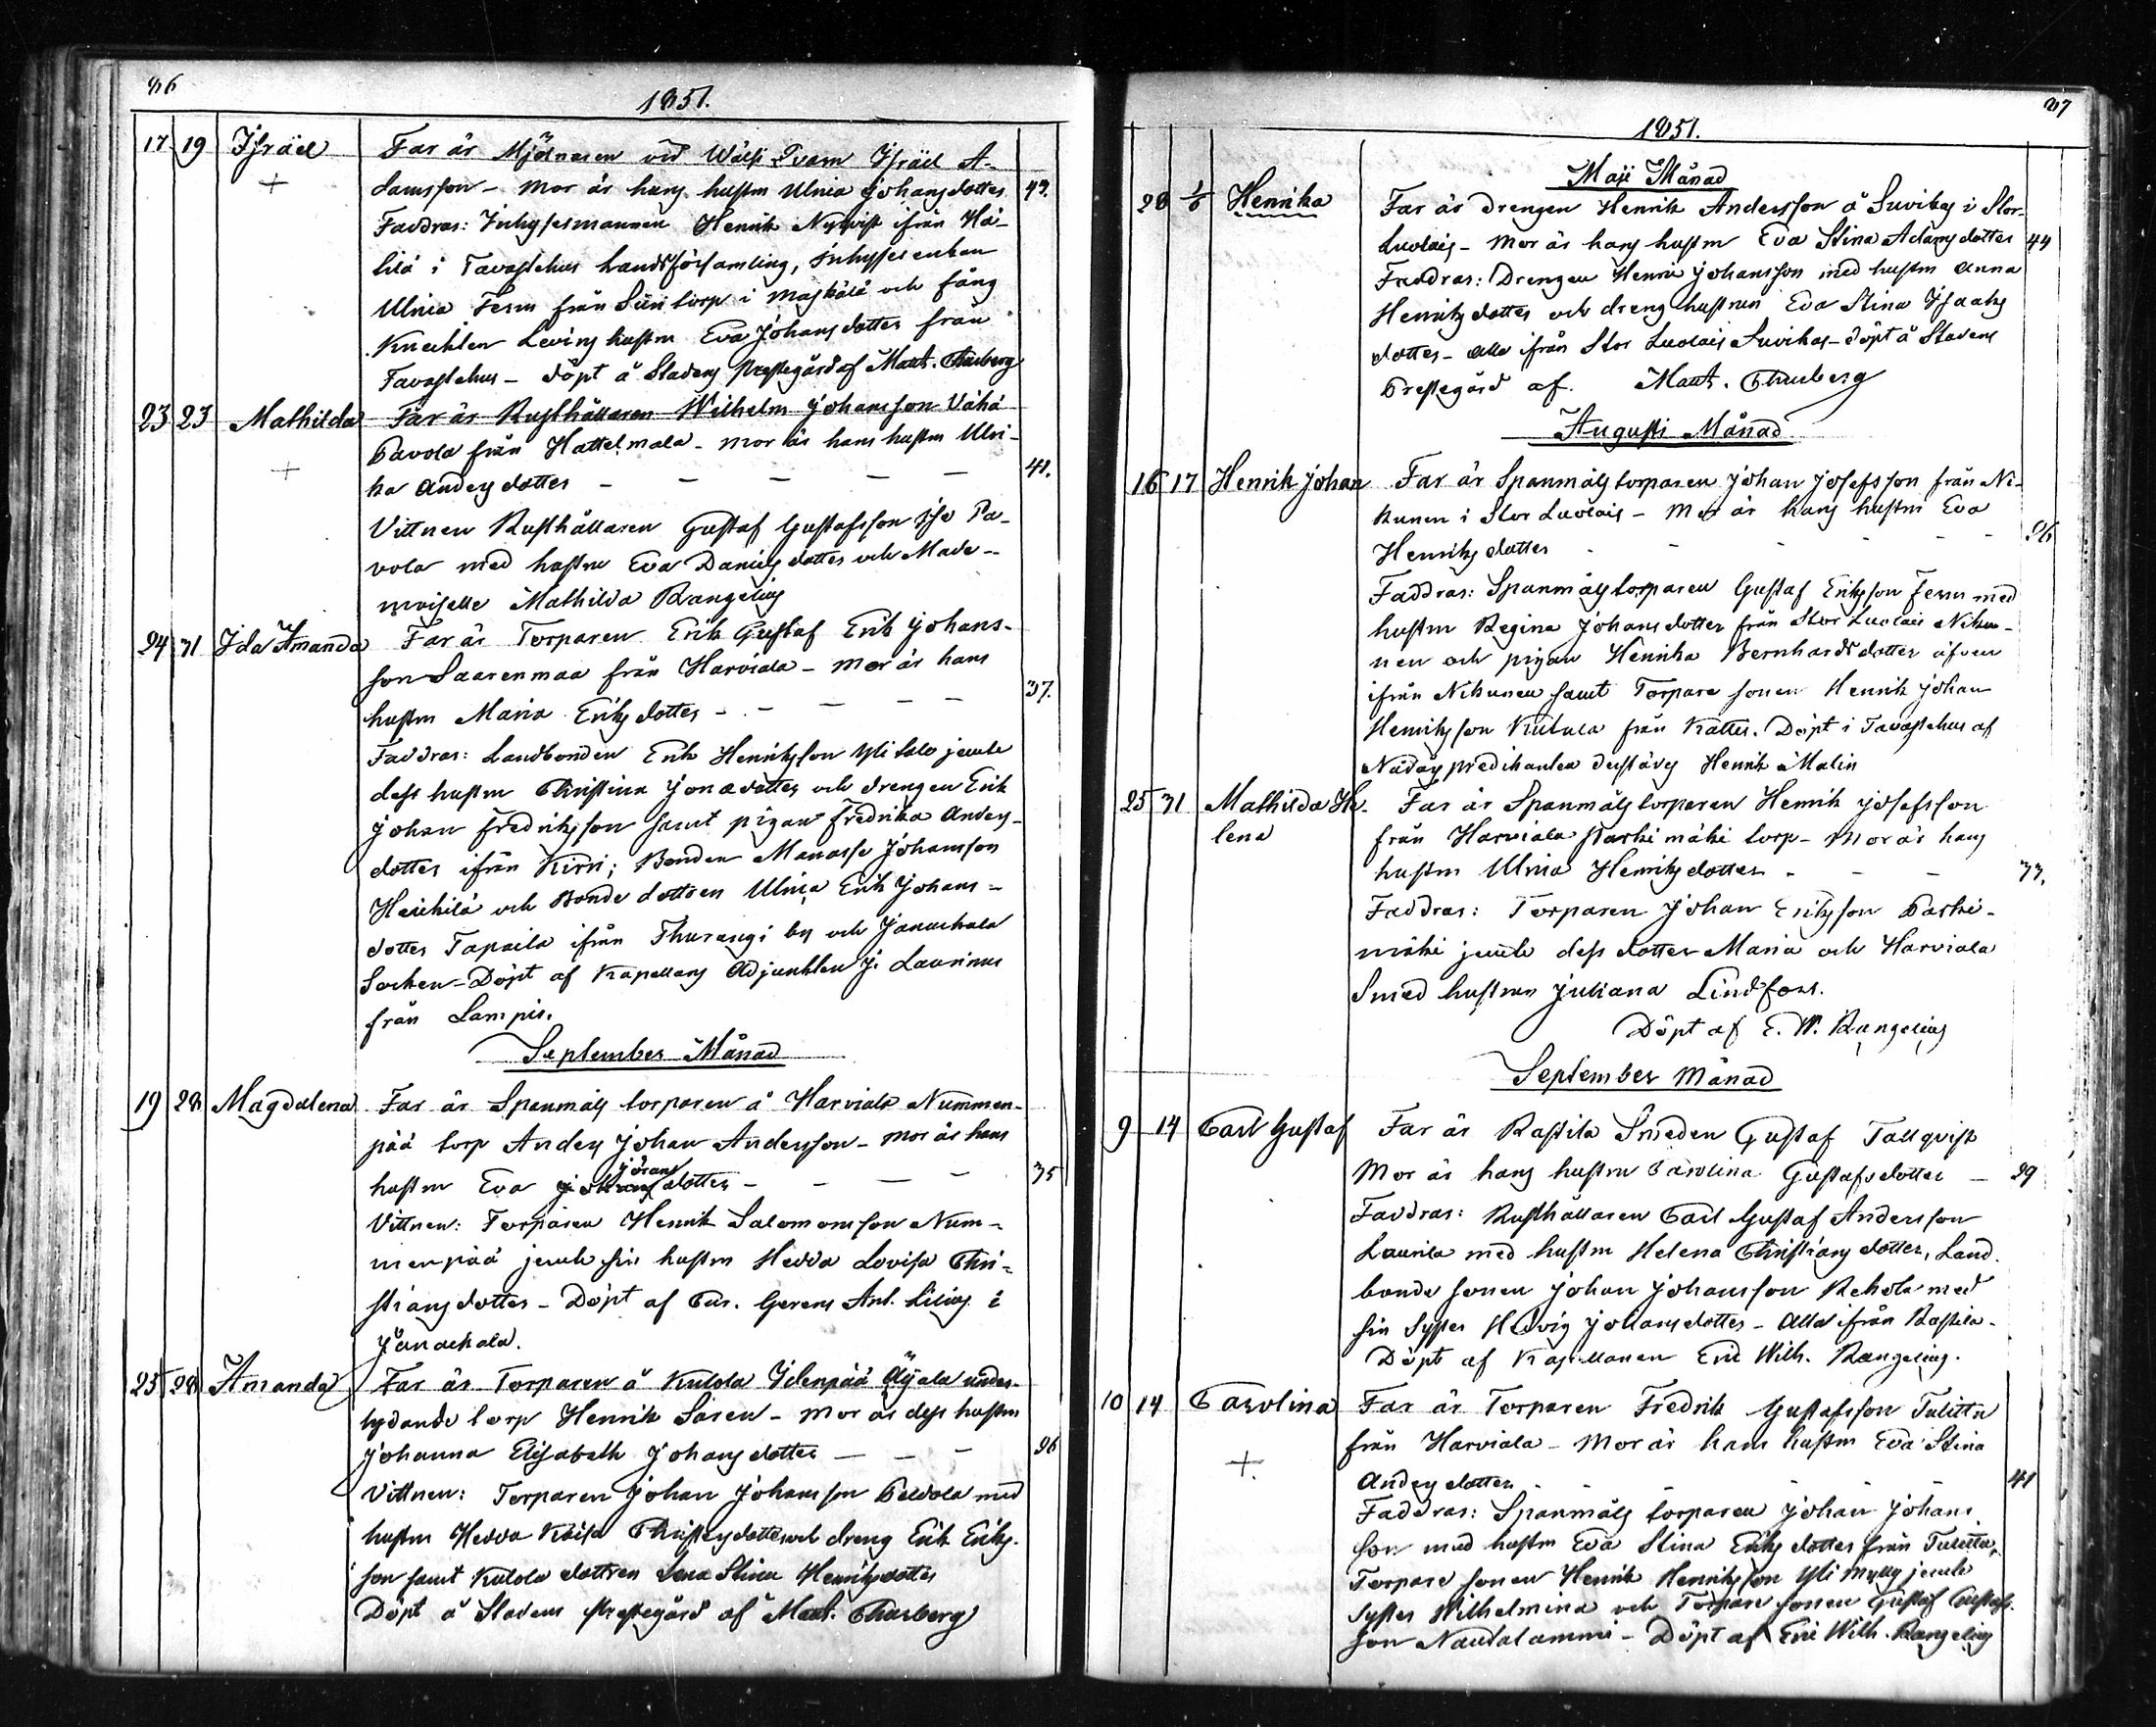 86
1851.
17 19 Isräel Far är Mjölnaren vid Wälsi Qvarn Isräel A-
damsson - Mor är hans hustru Ulrica Johansdotter 43.
Faddrar: Inhysesmannen Henrik Nyqvist ifrån Hä-
tilä i Tavastehus Landsförsamling, Inhysesenkan
Ulrica Fern från Siiri torp i Maskälä och fång
Knechten Levins hustru Eva Johansdotter från
Tavastehus - döpt å Stadens Prestegård af Matts. Thurberg
23 23 Mathilda Far är Rusthållaren Wilhelm Johansson Vähä
Pavola från Hattelmala - Mor är hans hustru Ulri-
ka Andersdotter - - - - - 41.
Vittnen Rusthållaren Gustaf Gustafsson Iso Pa-
vola med hustru Eva Danielsdotter och Made-
moiselle Mathilda Rangelius
24 31 Ida Amanda Far är Torparen Erik Gustaf Erik Johans-
son Saarenmaa från Harviala - Mor är hans
hustru Maria Eriksdotter - - - - - 37.
Faddrar: Landbonden Erik Henriksson Yli talo jemte
dess hustru Christina Jonædotter och drengen Erik
Johan Fredriksson samt pigan Fredrika Anders-
dotter ifrån Kirri; Bonden Manasse Johansson
Heickilä och Bonde dottren Ulrica Erik Johans-
dotter Tapaila ifrån Thurangi by och Janackala
Socken - Döpt af Kapellans Adjunkten J. Laurinus
från Lampis.
September Månad
19 28 Magdalena Far är Spanmåls torparen å Harviala Nummen-
pää torp Anders Johan Andersson - Mor är hans
Jörans
hustru Eva Johans dotter - - - - 35
Vittnen: Torparen Henrik Salomonsson Num-
menpää jemte sin hustru Hedda Lovisa Chri-
stiansdotter - Döpt af Cur. Gerens Ant. Lilius i
Janackala.
25 28 Amanda Far är Torparen å Kutola Idenpää Äijälä under-
lydande torp Henrik Saren - Mor är dess hustru
Johanna Elisabeth Johansdotter - - - 26
Vittnen: Torparen Johan Johansson Peldola med
hustru Hedda Kaisa Christersdotter och dreng Erik Eriks-
son samt Kutola dottren Lena Stina Henriksdotter
Döpt å Stadens Prestegård af Matt. Thurberg
87
1851.
Maji Månad
28 1/6 Henrika Far är drengen Henrik Andersson å Suvikas i Stor-
Luolais - Mor är hans hustru Eva Stina Adamsdotter 44
Faddrar: Drengen Henric Johansson med hustru Anna
Henriksdotter och dreng hustrun Eva Stina Isaaks
dotter - alla ifrån Stor Luolais Suvikas - döpt å Stadens
Prestegård af Matt. Thurberg
Augusti Månad
16 17 Henrik Johan Far är Spanmåls torparen Johan Josefsson från Ni-
kunen i Stor Luolais - Mor är hans hustru Eva
Henriksdotter - - - - - 26
Faddrar: Spanmåls torparen Gustaf Eriksson Fern med
hustru Regina Johansdotter från Stor Luolais Niku-
nen och pigan Henrika Bernhardsdotter äfven
ifrån Nikunen samt Torpare sonen Henrik Johan
Henriksson Kutula från Katter. Döpt i Tavastehus af
Nådårs predikanten derstädes Henrik Malin
25 31 Mathilda He-
lena Far är Spanmåls torparen Henrik Josefsson
från Harviala Paskimäki torp - Mor är hans
hustru Ulrica Henriksdotter - - - 33.
Faddrar: Torparen Johan Eriksson Paski-
mäki jemte dess dotter Maria och Harviala
Smed hustrun Juliana Lindfors.
Döpt af E. W. Rangelius
September Månad
9 14 Carl Gustaf Far är Rastila Smeden Gustaf Tallqvist
Mor är hans hustru Carolina Gustafsdotter - 29
Faddrar: Rusthållaren Carl Gustaf Andersson
Laurila med hustru Helena Christiansdotter, Land-
bonde sonen Johan Johansson Rekola med
sin syster Hedvig Johansdotter - alla ifrån Rastila -
Döpt af Kapellanen Eric Wilh. Rangelius.
10 14 Carolina Far är Torparen Fredrik Gustafsson Tulitta
från Harviala - Mor är hans hustru Eva Stina
Andersdotter - - - - - 41
Faddrar: Spanmåls torparen Johan Johans
son med hustru Eva Stina Eriksdotter från Tulitta,
Torpare sonen Henrik Henriksson Yli Mylly jemte
Syster Wilhelmina och Torpare sonen Gustaf Gustafs-
son Nautalammi - Döpt af Eric Wilh. Rangelius